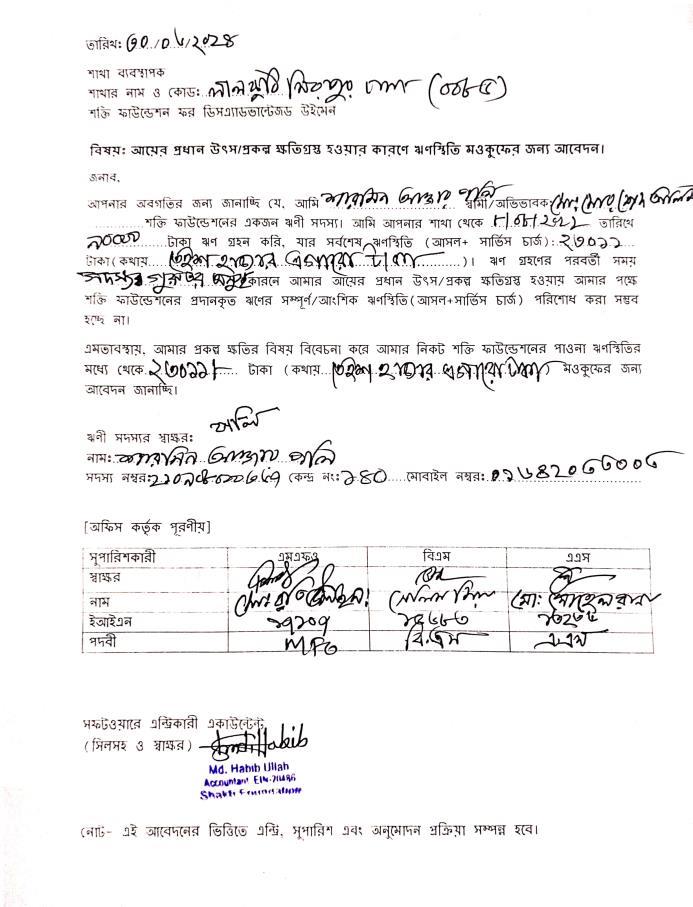 তারিখ: ৩০/০৬/২০২৪
শাখা ব্যবস্থাপক
শাখার নাম ও কোড: লালকুঠি মিরপুর ঢাকা (০০৮৫)
শক্তি ফাউন্ডেশন ফর ডিসএ্যাডভান্টেজড উইমেন
বিষয়: আয়ের প্রধান উৎস/প্রকল্প ক্ষতিগ্রস্থ হওয়ার কারণে ঋণস্থিতি মওকুফের জন্য আবেদন।
জনাব,
আপনার অবগতির জন্য জানাচ্ছি যে, আমি শারমিন আক্তার পলি স্বামী/অভিভাবক
শক্তি ফাউন্ডেশনের একজন ঋণী সদস্য। আমি আপনার শাখা থেকে তারিখে
টাকা ঋণ গ্রহন করি, যার সর্বশেষ ঋণস্থিতি (আসল+ সার্ভিস চার্জ): ২৩০১১
টাকা(কথায় তেইশ হাজার এগারো টাকা)। ঋণ গ্রহণের পরবর্তী সময়
সদস্যর গুরুতর অসুস্থ কারনে আমার আয়ের প্রধান উৎস/প্রকল্প ক্ষতিগ্রস্থ হওয়ায় আমার পক্ষে
শক্তি ফাউন্ডেশনের প্রদানকৃত ঋণের সম্পূর্ণ/আংশিক ঋণস্থিতি(আসল+সার্ভিস চার্জ) পরিশোধ করা সম্ভব
হচ্ছে না।
এমতাবস্থায়, আমার প্রকল্প ক্ষতির বিষয় বিবেচনা করে আমার নিকট শক্তি ফাউন্ডেশনের পাওনা ঋণস্থিতির
মধ্যে থেকে ২৩০১১/- টাকা (কথায় তেইশ হাজার এগারো টাকা মওকুফের জন্য
আবেদন জানাচ্ছি।
ঋণী সদস্যর স্বাক্ষর: পলি
নাম: শারমিন আক্তার পলি
সদস্য নম্বর: কেন্দ্র নং: ১৪০ মোবাইল নম্বর:
[অফিস কর্তৃক পূরণীয়]
সুপারিশকারী এমএফও বিএম এএস
স্বাক্ষর
নাম সেলিম মিয়া মো: সোহেল রানা
ইআইএন ১৭২০৭
পদবী MFO বি.এম এএস
সফটওয়ারে এন্ট্রিকারী একাউন্টেন্ট
(সিলসহ ও স্বাক্ষর) Habib
Md. Habib Ullah
Accountant EIN-21486
Shakti Foundation
নোট- এই আবেদনের ভিত্তিতে এন্ট্রি, সুপারিশ এবং অনুমোদন প্রক্রিয়া সম্পন্ন হবে।